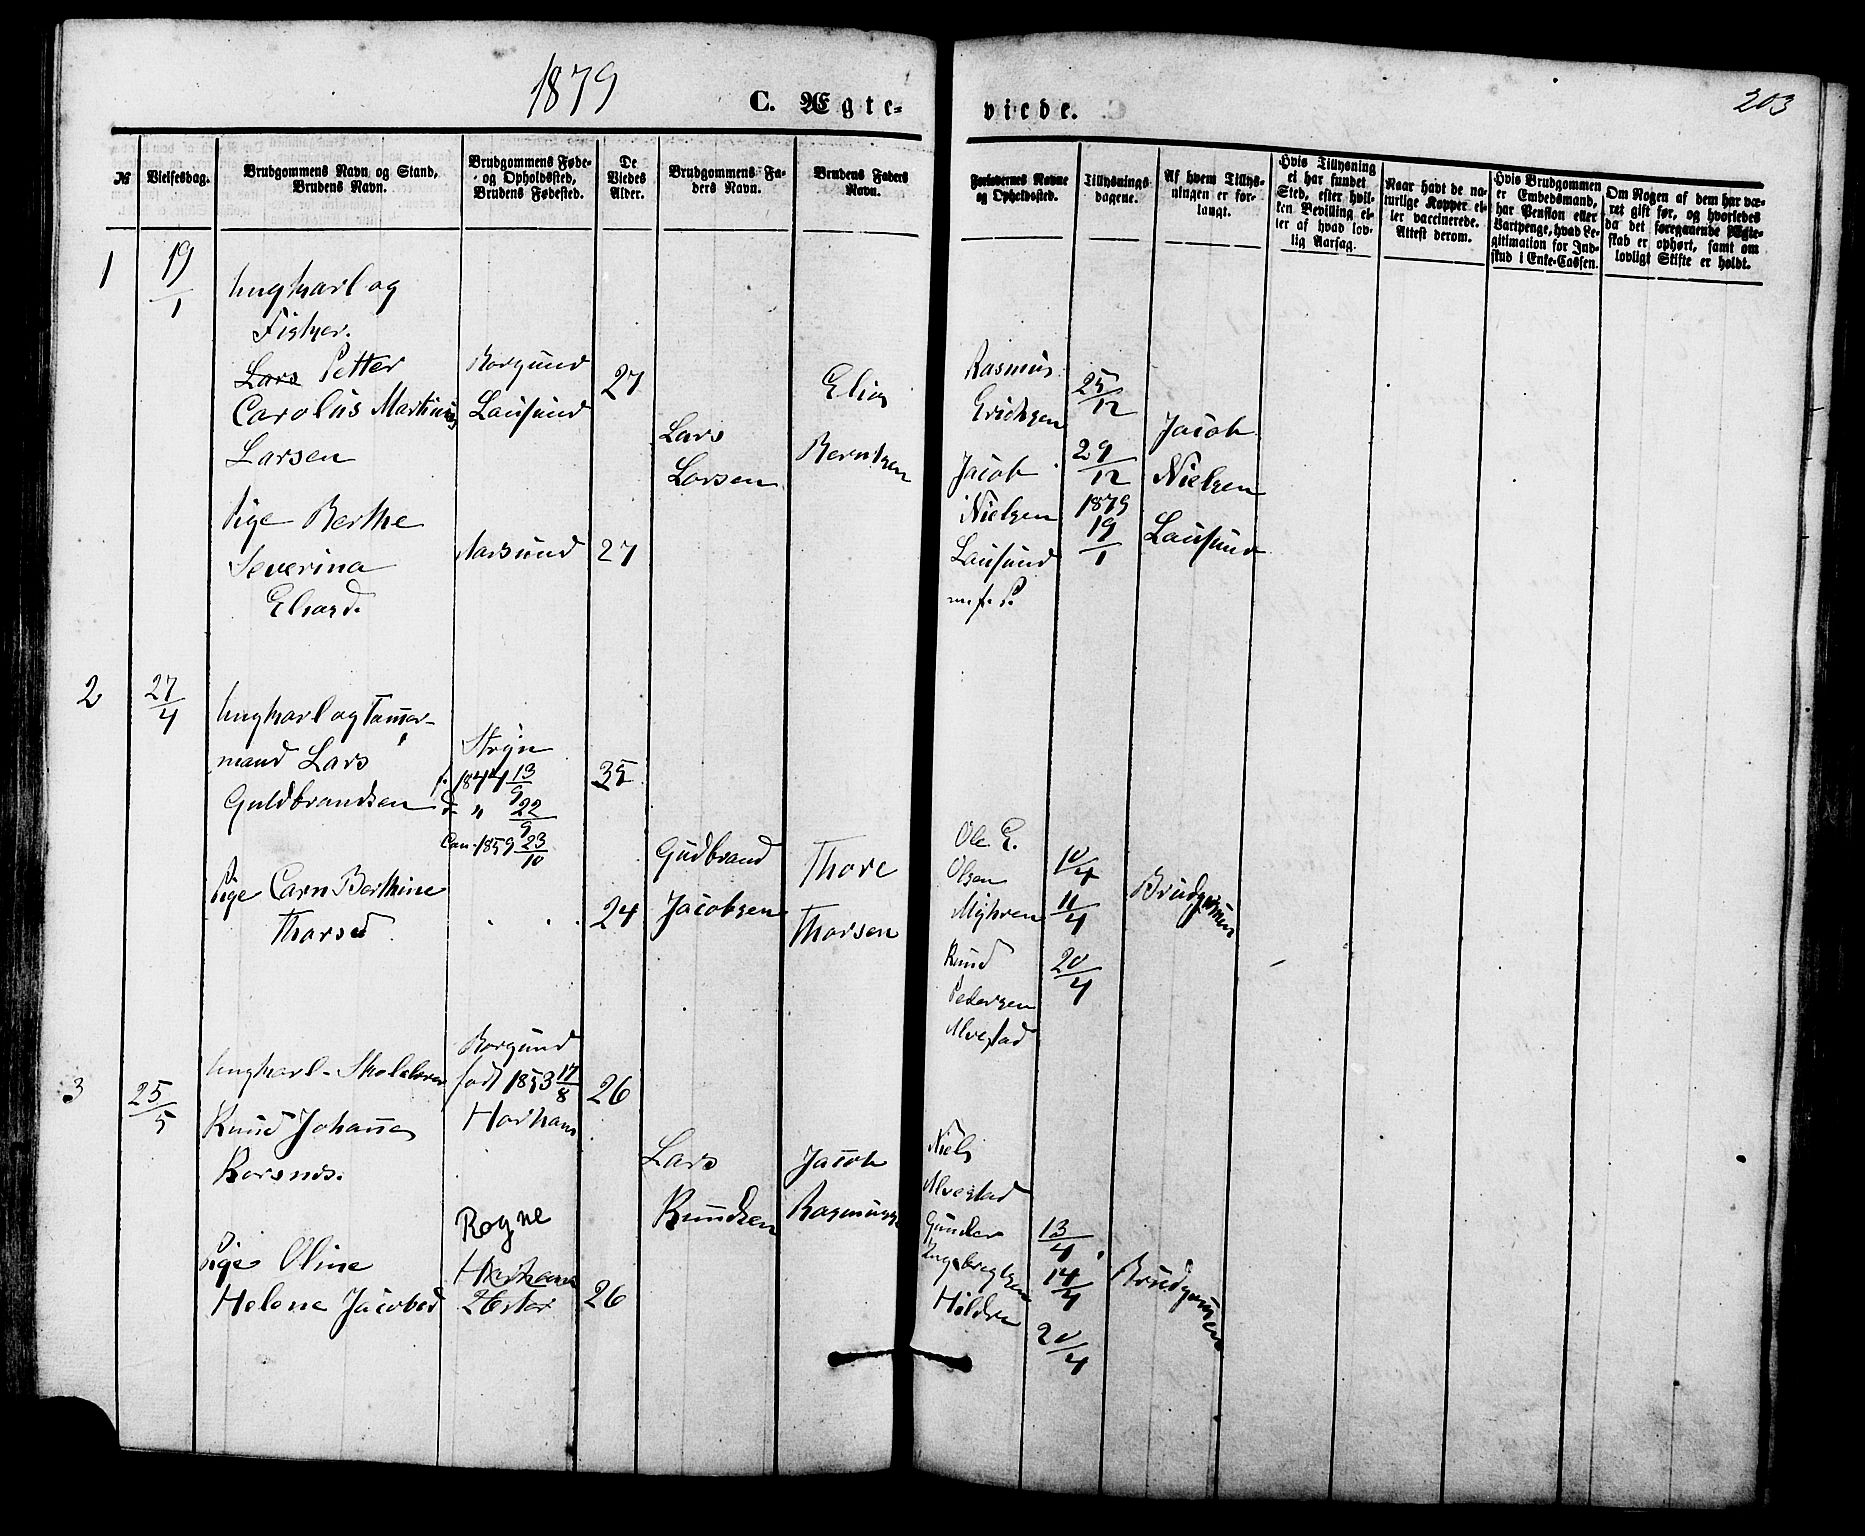 1879
C. Ægte-
viede.
203
№
Vielsesdag.
Brudgommens Navn og Stand,
Brudens Navn.
Brudgommens Føde-
og Opholdssted,
Brudens Fødested.
De
Viedes
Alder.
Brudgommens Fa-
ders Navn.
Brudens Faders
Navn.
Forlovernes Navne
og Opholdssted.
Tillysnings
dagene.
Af hvem Tillys-
ningen er for-
langt.
Hvis Tillysning
ei har fundet
Sted, efter hvil-
ken Bevilling el-
ler af hvad lov-
lig Aarsag.
Naar havt de na-
turlige Kopper el-
ler vaccinerede.
Attest derom.
Hvis Brudgommen
er Embedsmand,
har Pension eller
Vartpenge, hvad Le-
gitimation for Ind-
skud i Enke-Cassen.
Om Nogen af dem har væ-
ret gift før, og hvorledes
da det foregaaende Ægte-
skab er ophørt, samt om
lovligt Skifte er holdt.
1
19/1
Ungkarl og
Fisker.
Lars Petter
Carolus Martinius
Larsen
Borgund
Lausund
27
Lars
Larsen
Elias
Berntsen
Rasmus
Erichsen
Jacob
Nielsen
Lausund
m. f. P.
25/12
29/12
1879
19/1
Jacob
Nielsen
Lausund
Pige Berthe
Severina
Eliasd.
Aarsund
27
2
27/4
Ungkarl og Tømer-
mand Lars
Guldbrandsen
Stryn
f. 1844 13/9
d. " 22/9
Con. 1859 23/10
35
Gudbrand
Jacobsen
Thore
Thorsen
Ole E.
Olsen
Myhren
Knud
Pedersen
Alvestad
10/4
11/4
20/4
Brudgommen
Pige Carn Berthine
Thorsd
24
3
25/5
Ungkarl - Skolelærer
Knud Johannes
Korsnes.
Borgund
født 1853 17/8
Harham
26
Lars
Knudsen
Jacob
Rasmussen
Niels
Alvestad
Gunder
Ingebregtsen
Hildre
13/4
14/4
20/4
Brudgommen
Pige Oline
Helene Jacobsd
Rogne
Harham
26